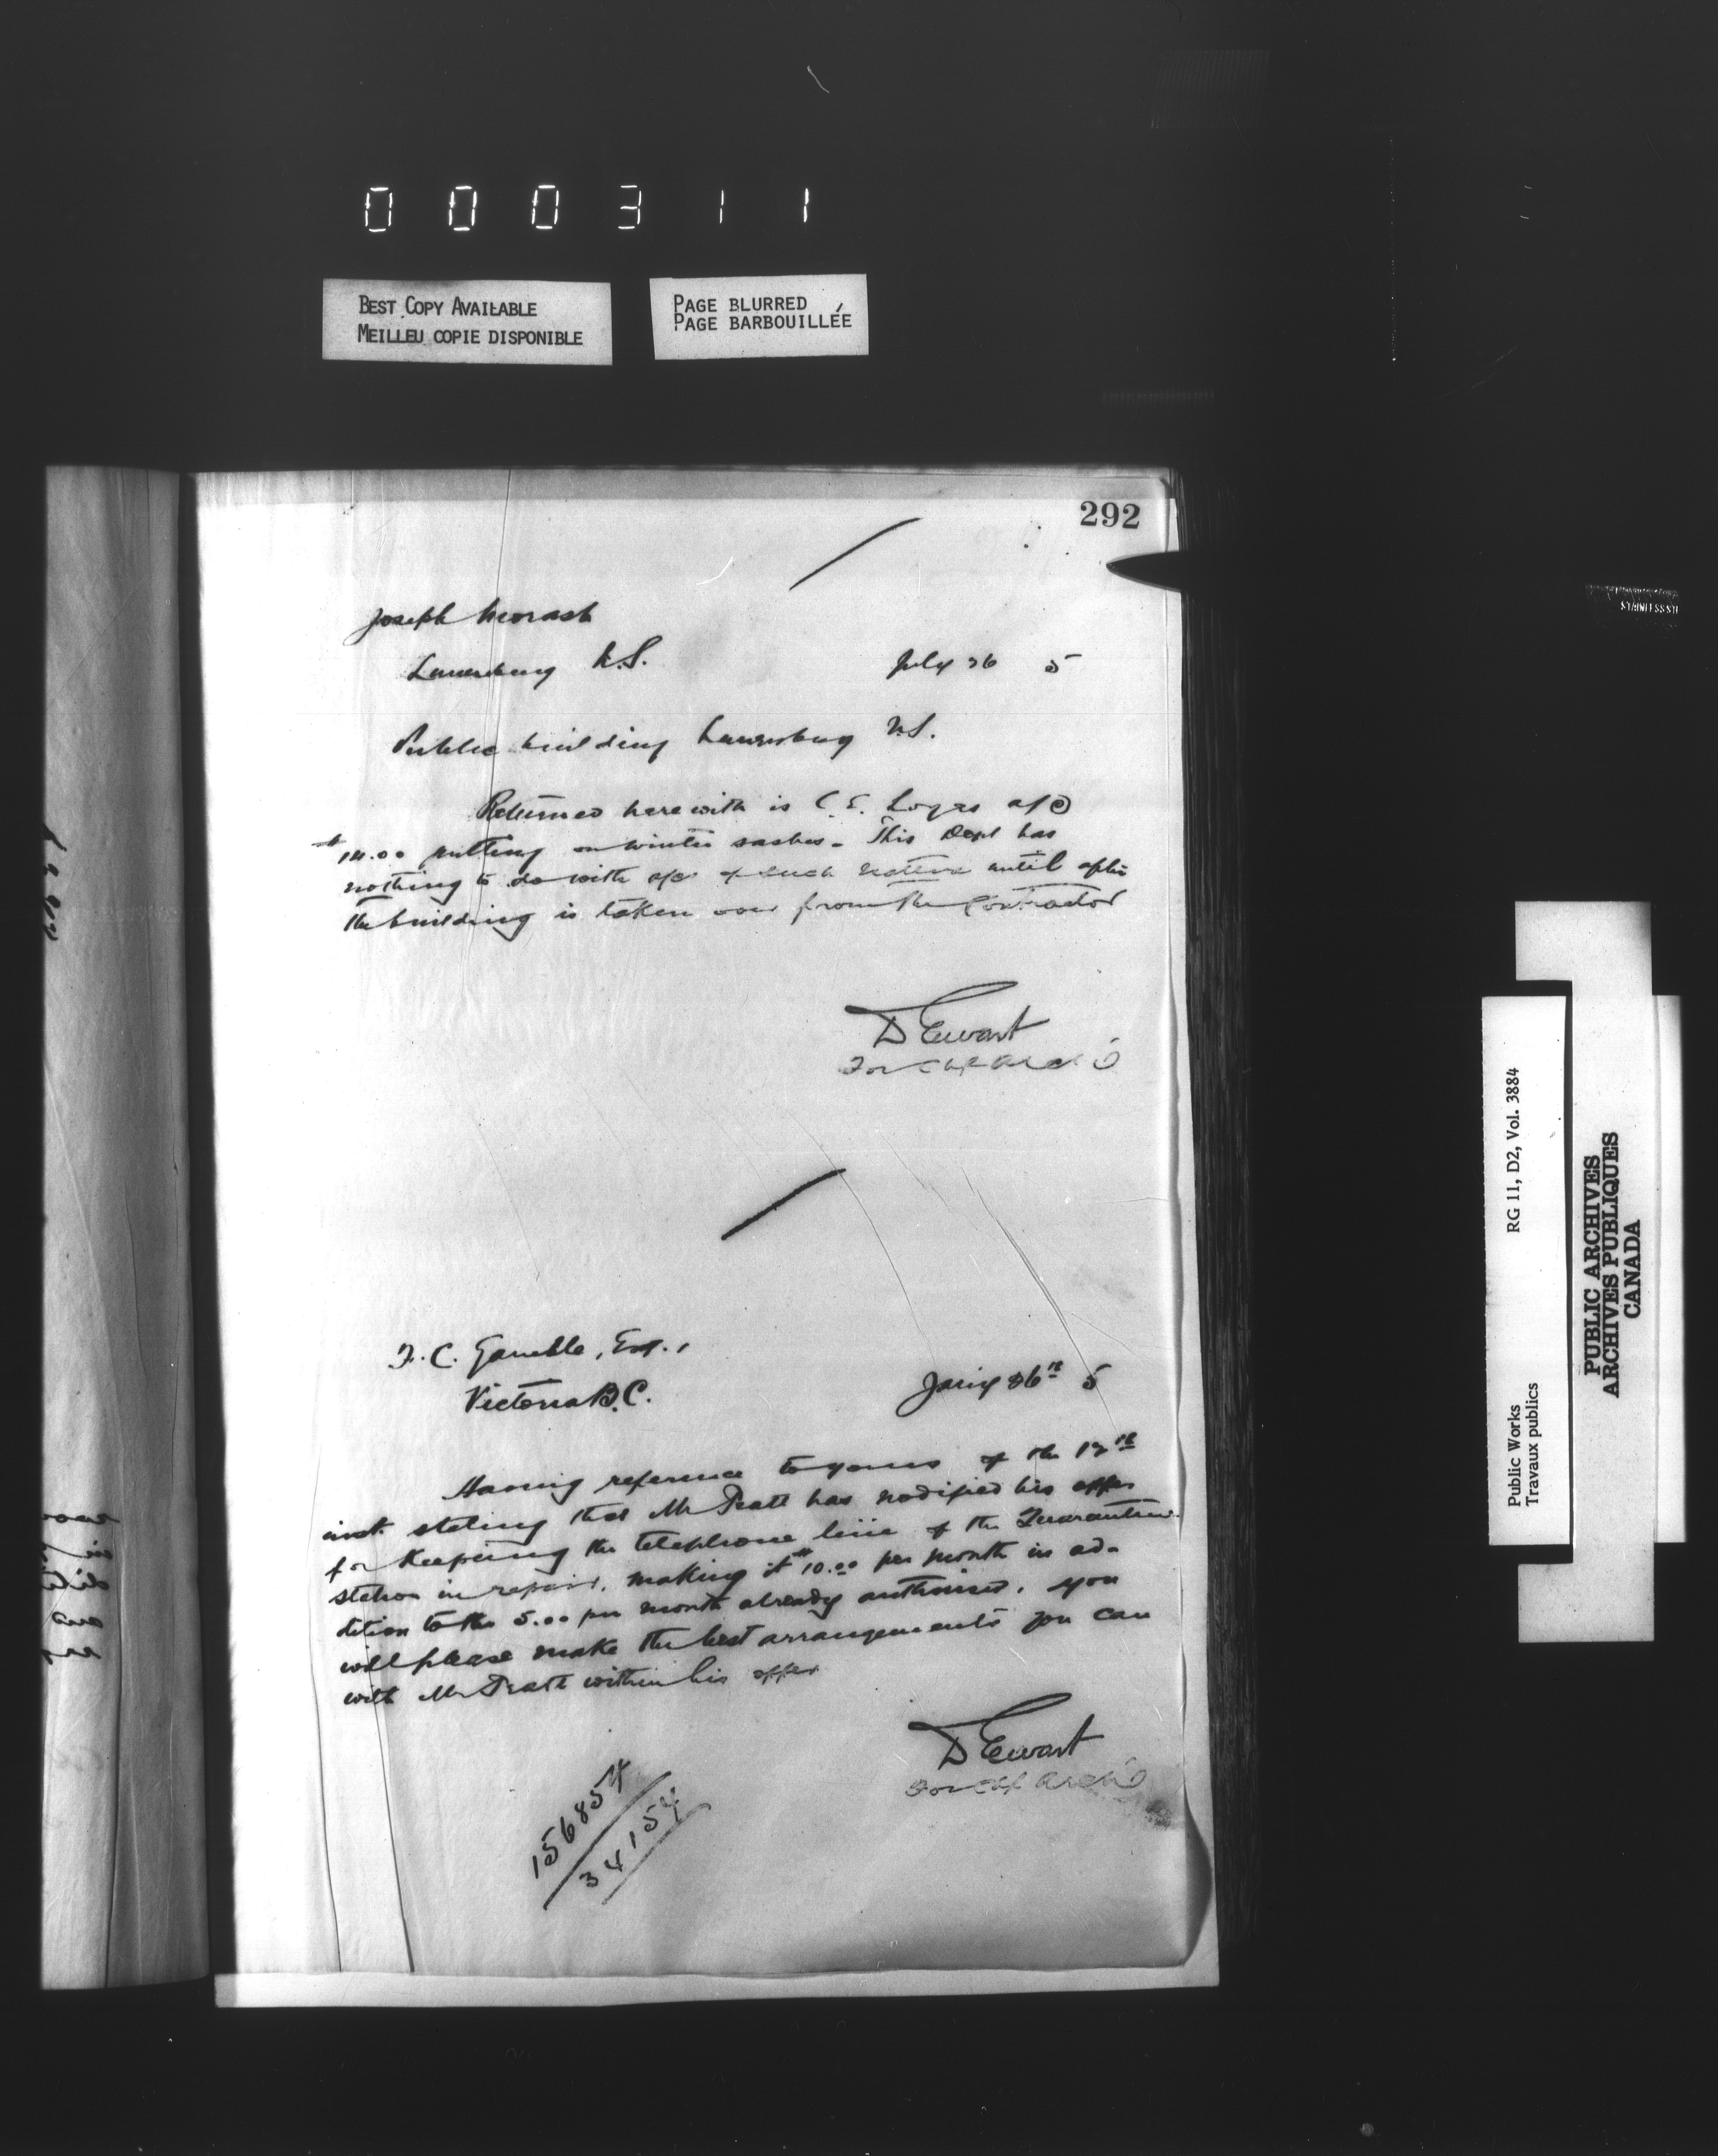 000311
BEST COPY AVAILABLE
MEILLEU COPIE DISPONIBLE
PAGE BLURRED
PAGE BARBOUILLÉE
292
Joseph Morash
Lunenburg N.S.
July 26 5
Public building Lunenburg N.S.
Returned herewith is C.E. a/c
$14.00 putting on winter sashes. This Dept has
nothing to do with a/cs of such nature until after
the building is taken over from the Contractor
D Ewart
For Chf Archt
F. C. Gamble, Esq.,
Victoria B.C.
Jany 26th 5
Having reference to yours of the 17th
inst. stating that Mr Pratt has modified his offer
for keeping the telephone line of the Quarantine
station in repair, making it $10.00 per month in ad-
dition to the 5.00 per month already authorised, you
will please make the best arrangements you can
with Mr Pratt within his offer
D Ewart
For Chf Archt
156854
34154
RG 11, D2, Vol. 3884
Public Works
Travaux publics
PUBLIC ARCHIVES
ARCHIVES PUBLIQUES
CANADA